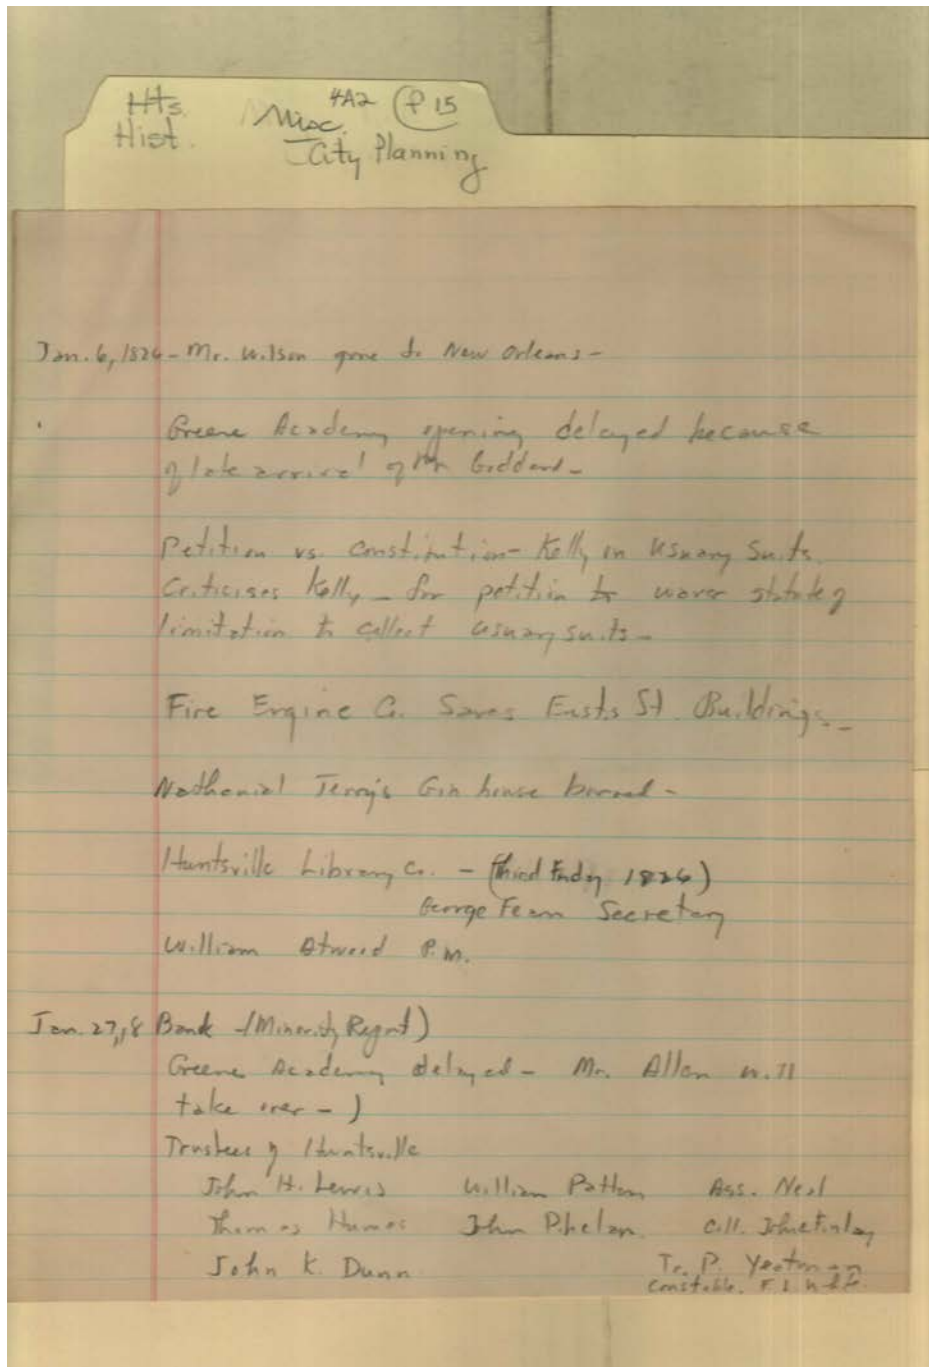 Hts. Misc. 4A2 P 15
Hist. City Planning
Jan. 6, 1826 - Mr. Wilson gone to New Orleans -
Greene Academy opening delayed because
of late arrival of Mr Goddard -
Petition vs. Constitution - Kelly in Usuary Suits.
Criticises Kelly - for petition to waver statute of
limitation to collect usuary suits -
Fire Engine Co. Saves Eusts St. Buildings -
Nathanial Terry's Gin house burned -
Huntsville Library Co. - (third Friday 1826)
George Fearn Secretary
William Atwood P.M.
Jan. 27, 18 Bank - (Minority Report)
Greene Academy delayed - Mr. Allan will
take over - )
Trustees of Huntsville
John H. Lewis William Patton Ass. Neal
Thomas Humes John Phelan Coll. John Finlay
John K. Dunn Tr. P. Yeatman
Constable. F.